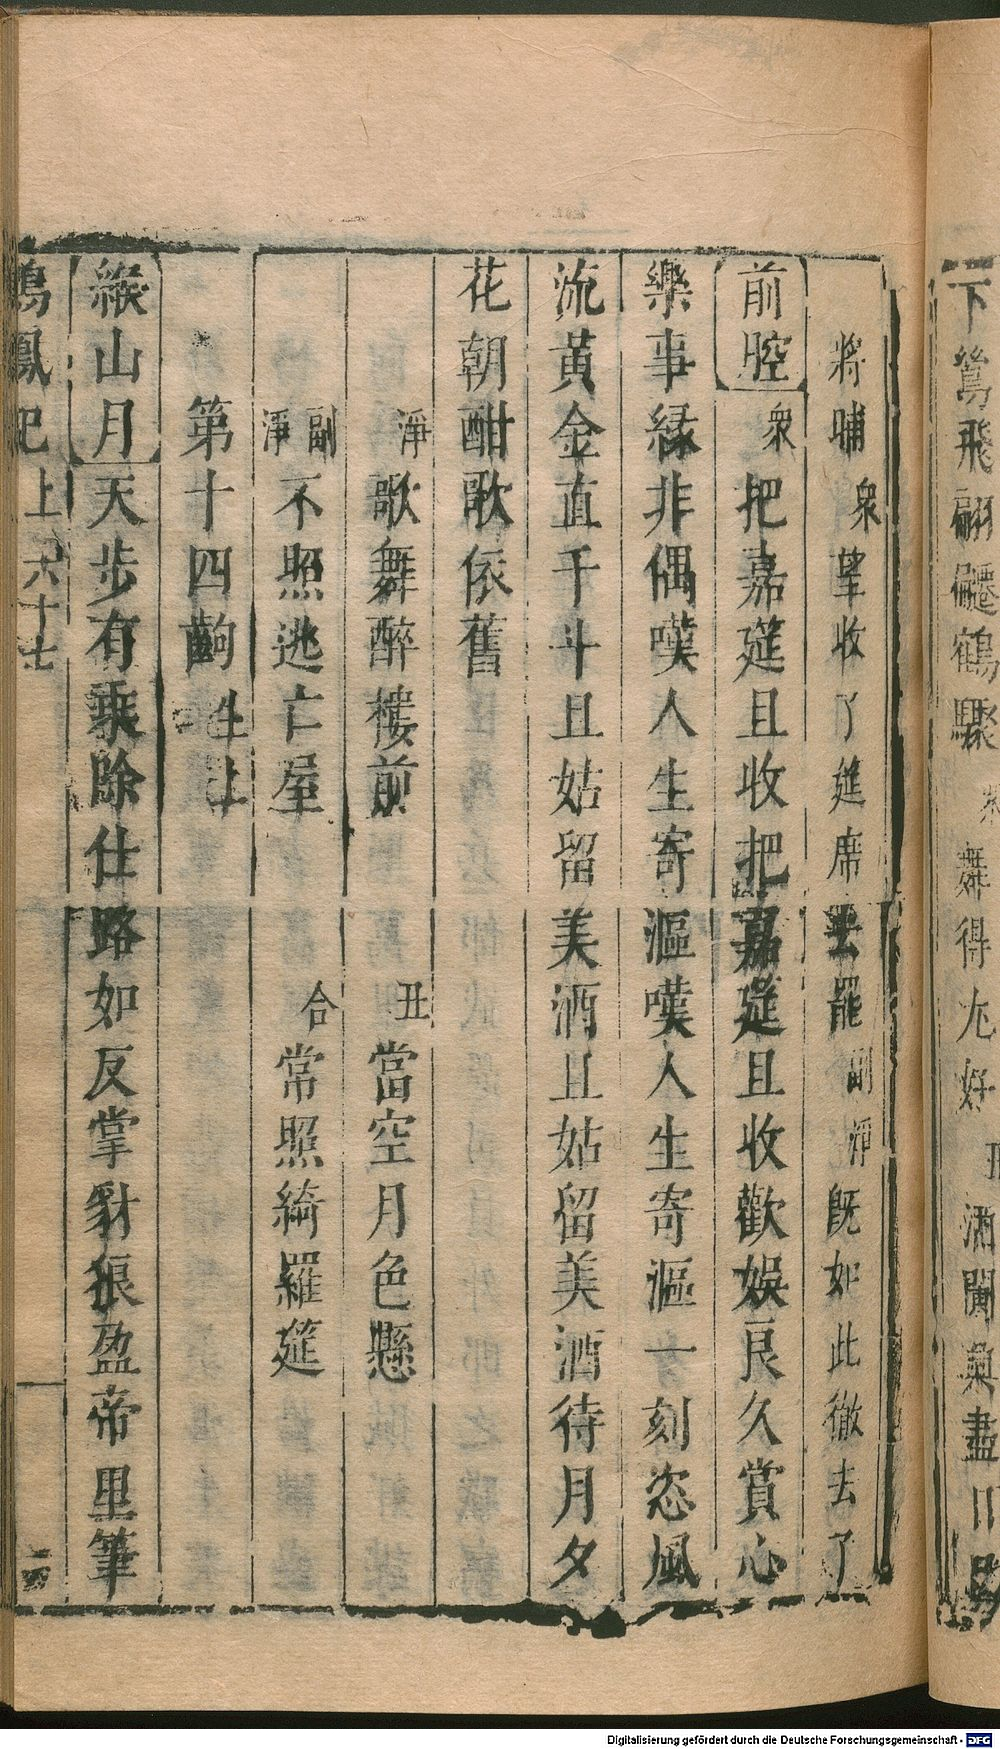 下鴛飛翩躚鶴驟 舞得尤好 丑 酒闌氣盡日
將晡 衆 望收了筵席去罷 副淨 既如此徹去了
前腔 衆 把嘉筵且收把嘉筵且收歡娛良久賞心
樂事緣非偶嘆人生寄漚嘆人生寄漚一刻恣風
流黄金直千斗且姑留美酒且姑留美酒待月夕
花朝酣歌依舊
淨 歌舞醉樓前 丑 當空月色懸
副淨 不照逃亡屋 合 常照綺羅筵
第十四齣
緱山月 天步有乘除仕路如反掌豺狼盈帝里筆
鳴鳳記 上 六十七
Digitalisierung gefördert durch die Deutsche Forschungsgemeinschaft - DFG